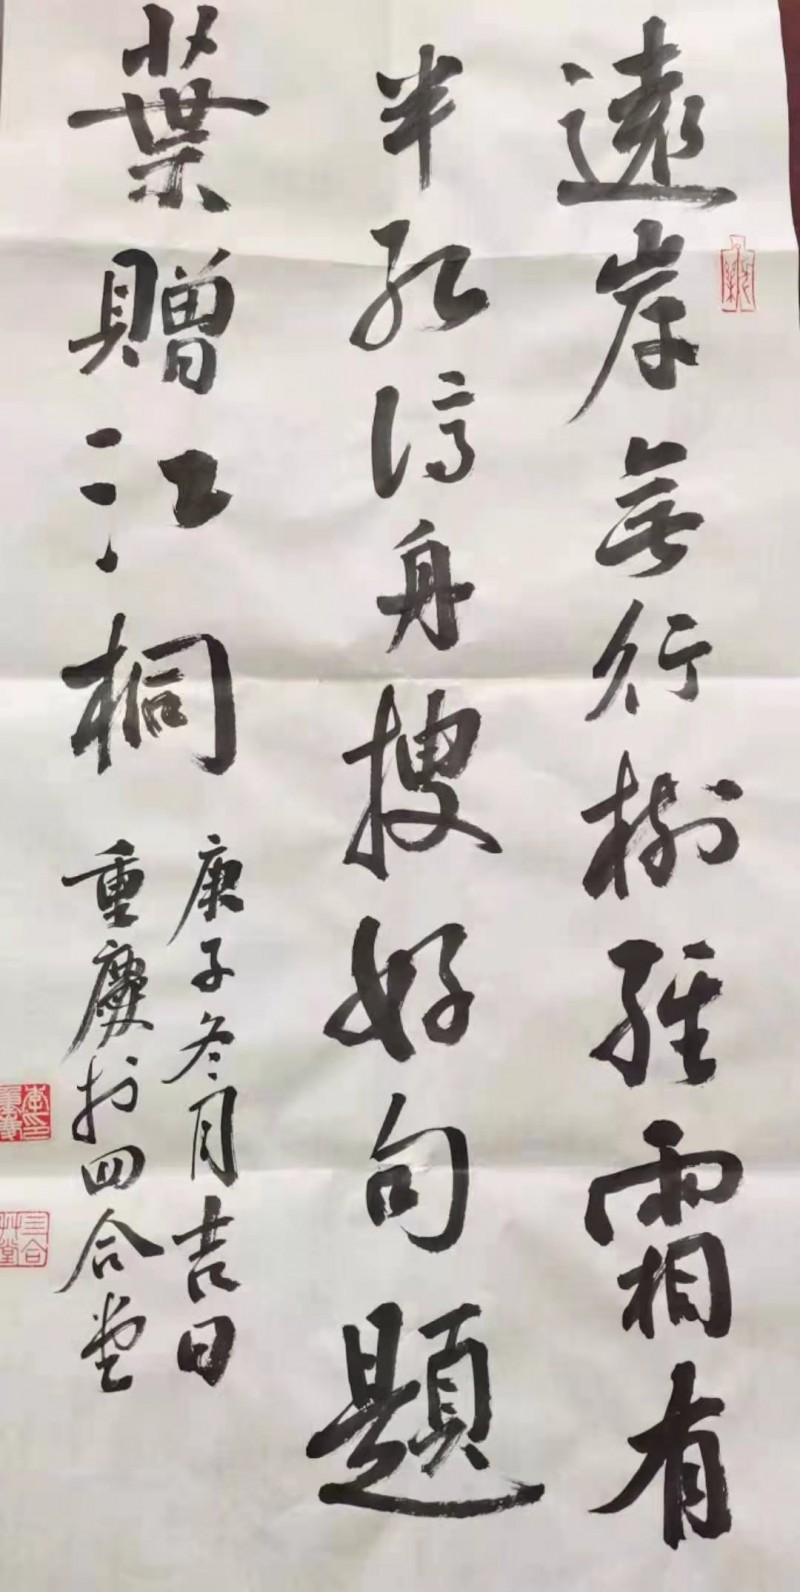 遠岸無行樹經霜有
半紅停舟搜好句題
葉贈江桐
庚子冬月吉日
重慶於四合堂